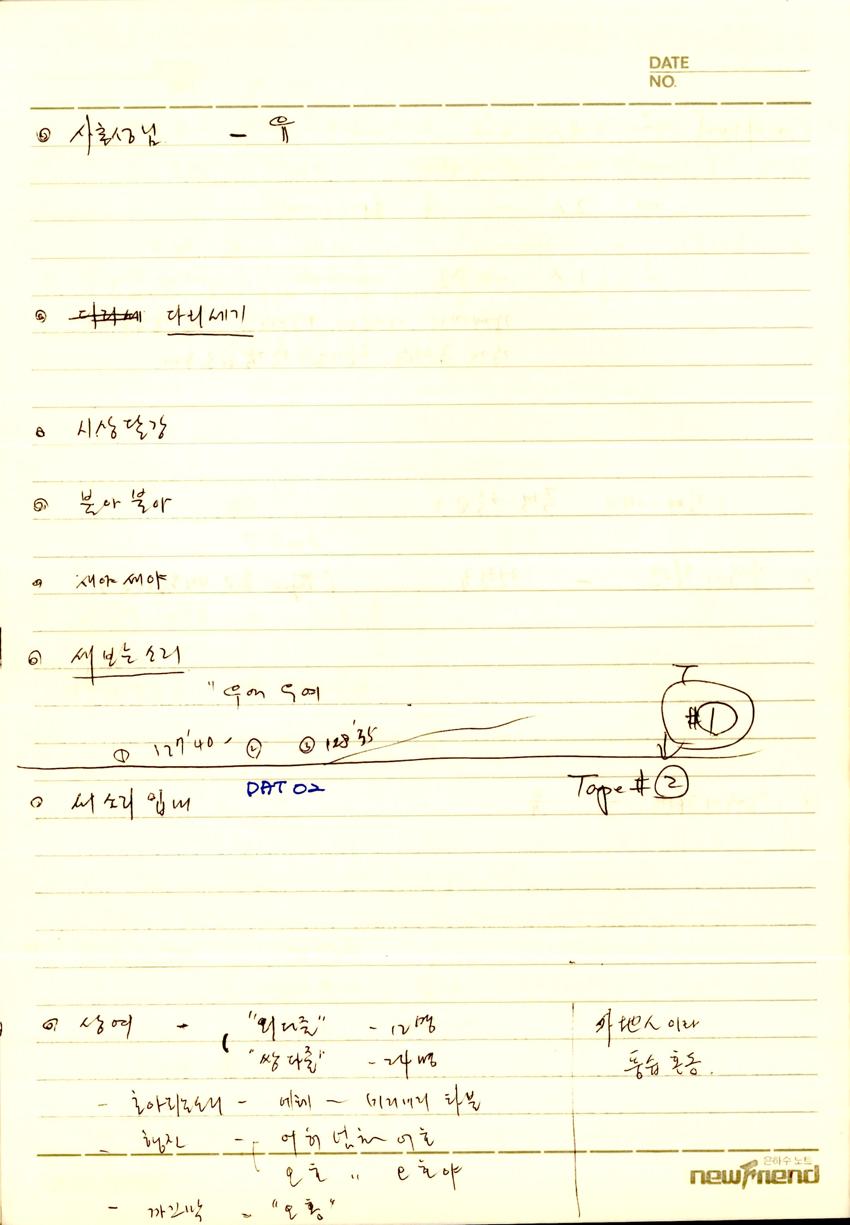 DATE
NO.
사촌성님 - 유
다리세 다리세기
시상달강
불아 불아
새야 새야
새 보는 소리
"우여 우여
① 127'40" ② ③ 128'35
#1
DAT 02
Tape # ②
새 소리 입내
상여 - "외다줄" - 12명
"쌍다줄" - 24명
外地人이라
풍습 혼동.
- 호아리소리 - 에헤 ~
- 행진 - 어허 넘차 어호
오호 〃 오호야
- "오홍"
은하수 노트
newfriend